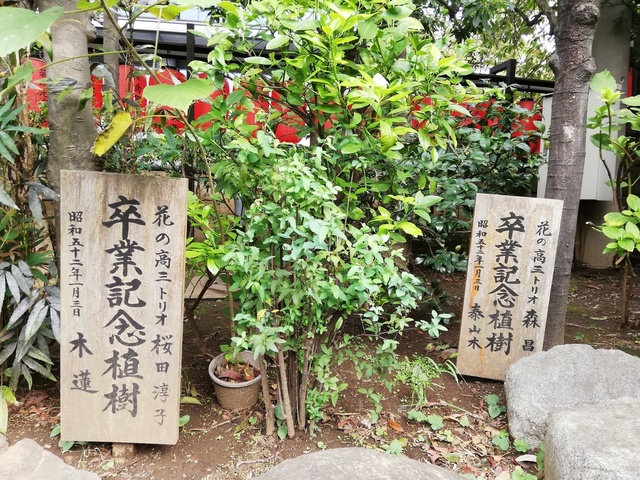 花の高三トリオ 桜田淳子
卒業記念植樹
昭和五十二年一月三日 木蓮
花の高三トリオ 森昌
卒業記念植樹
昭和五十二年一月三日 泰山木